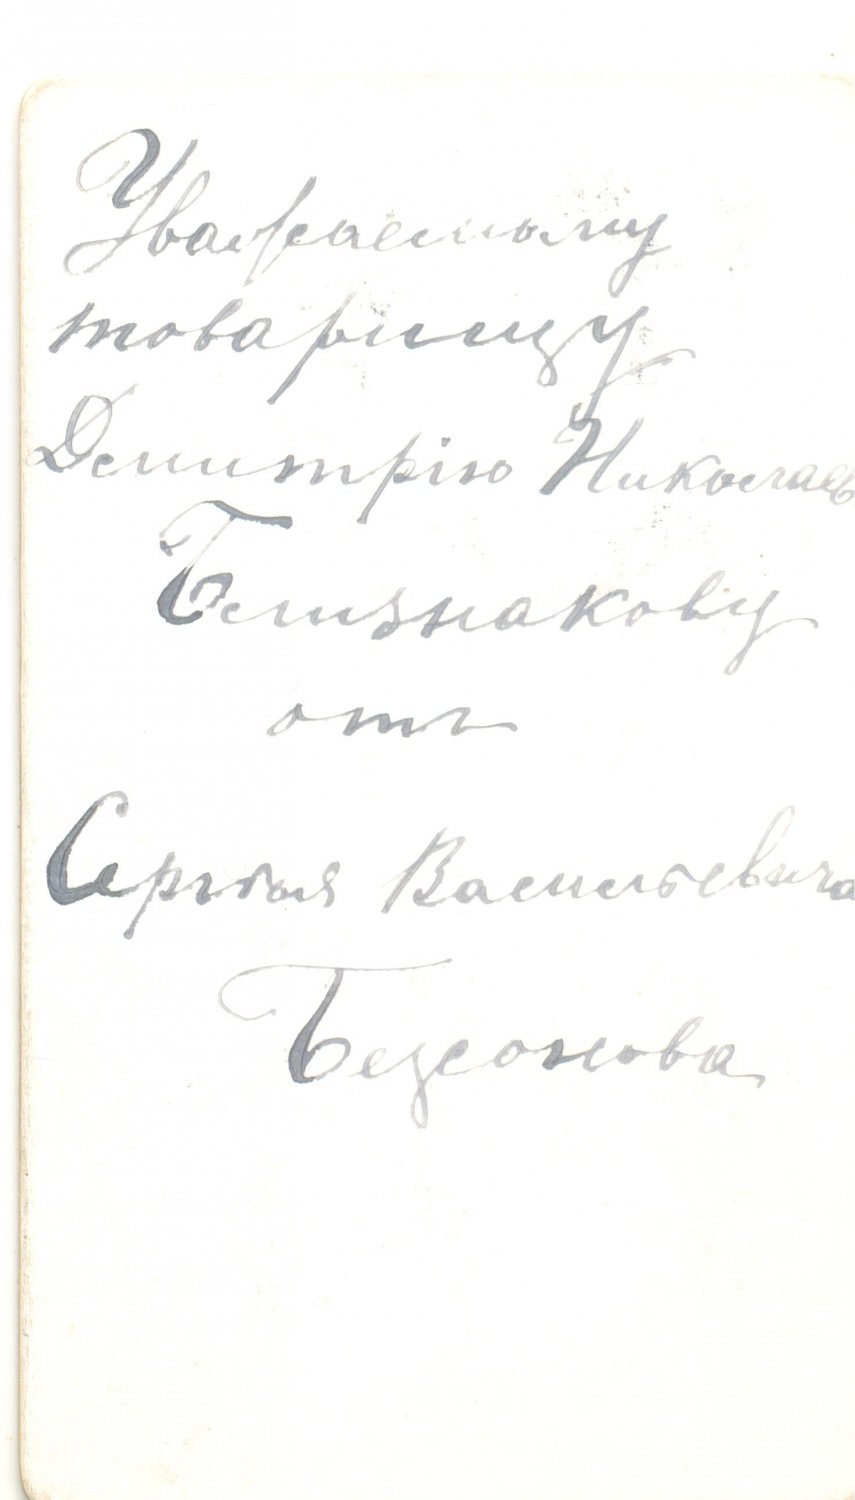 Уважаемому
товарищу
Дмитрію Николаев
Близнакову
отъ
Сергѣя Васильевича
Безсонова